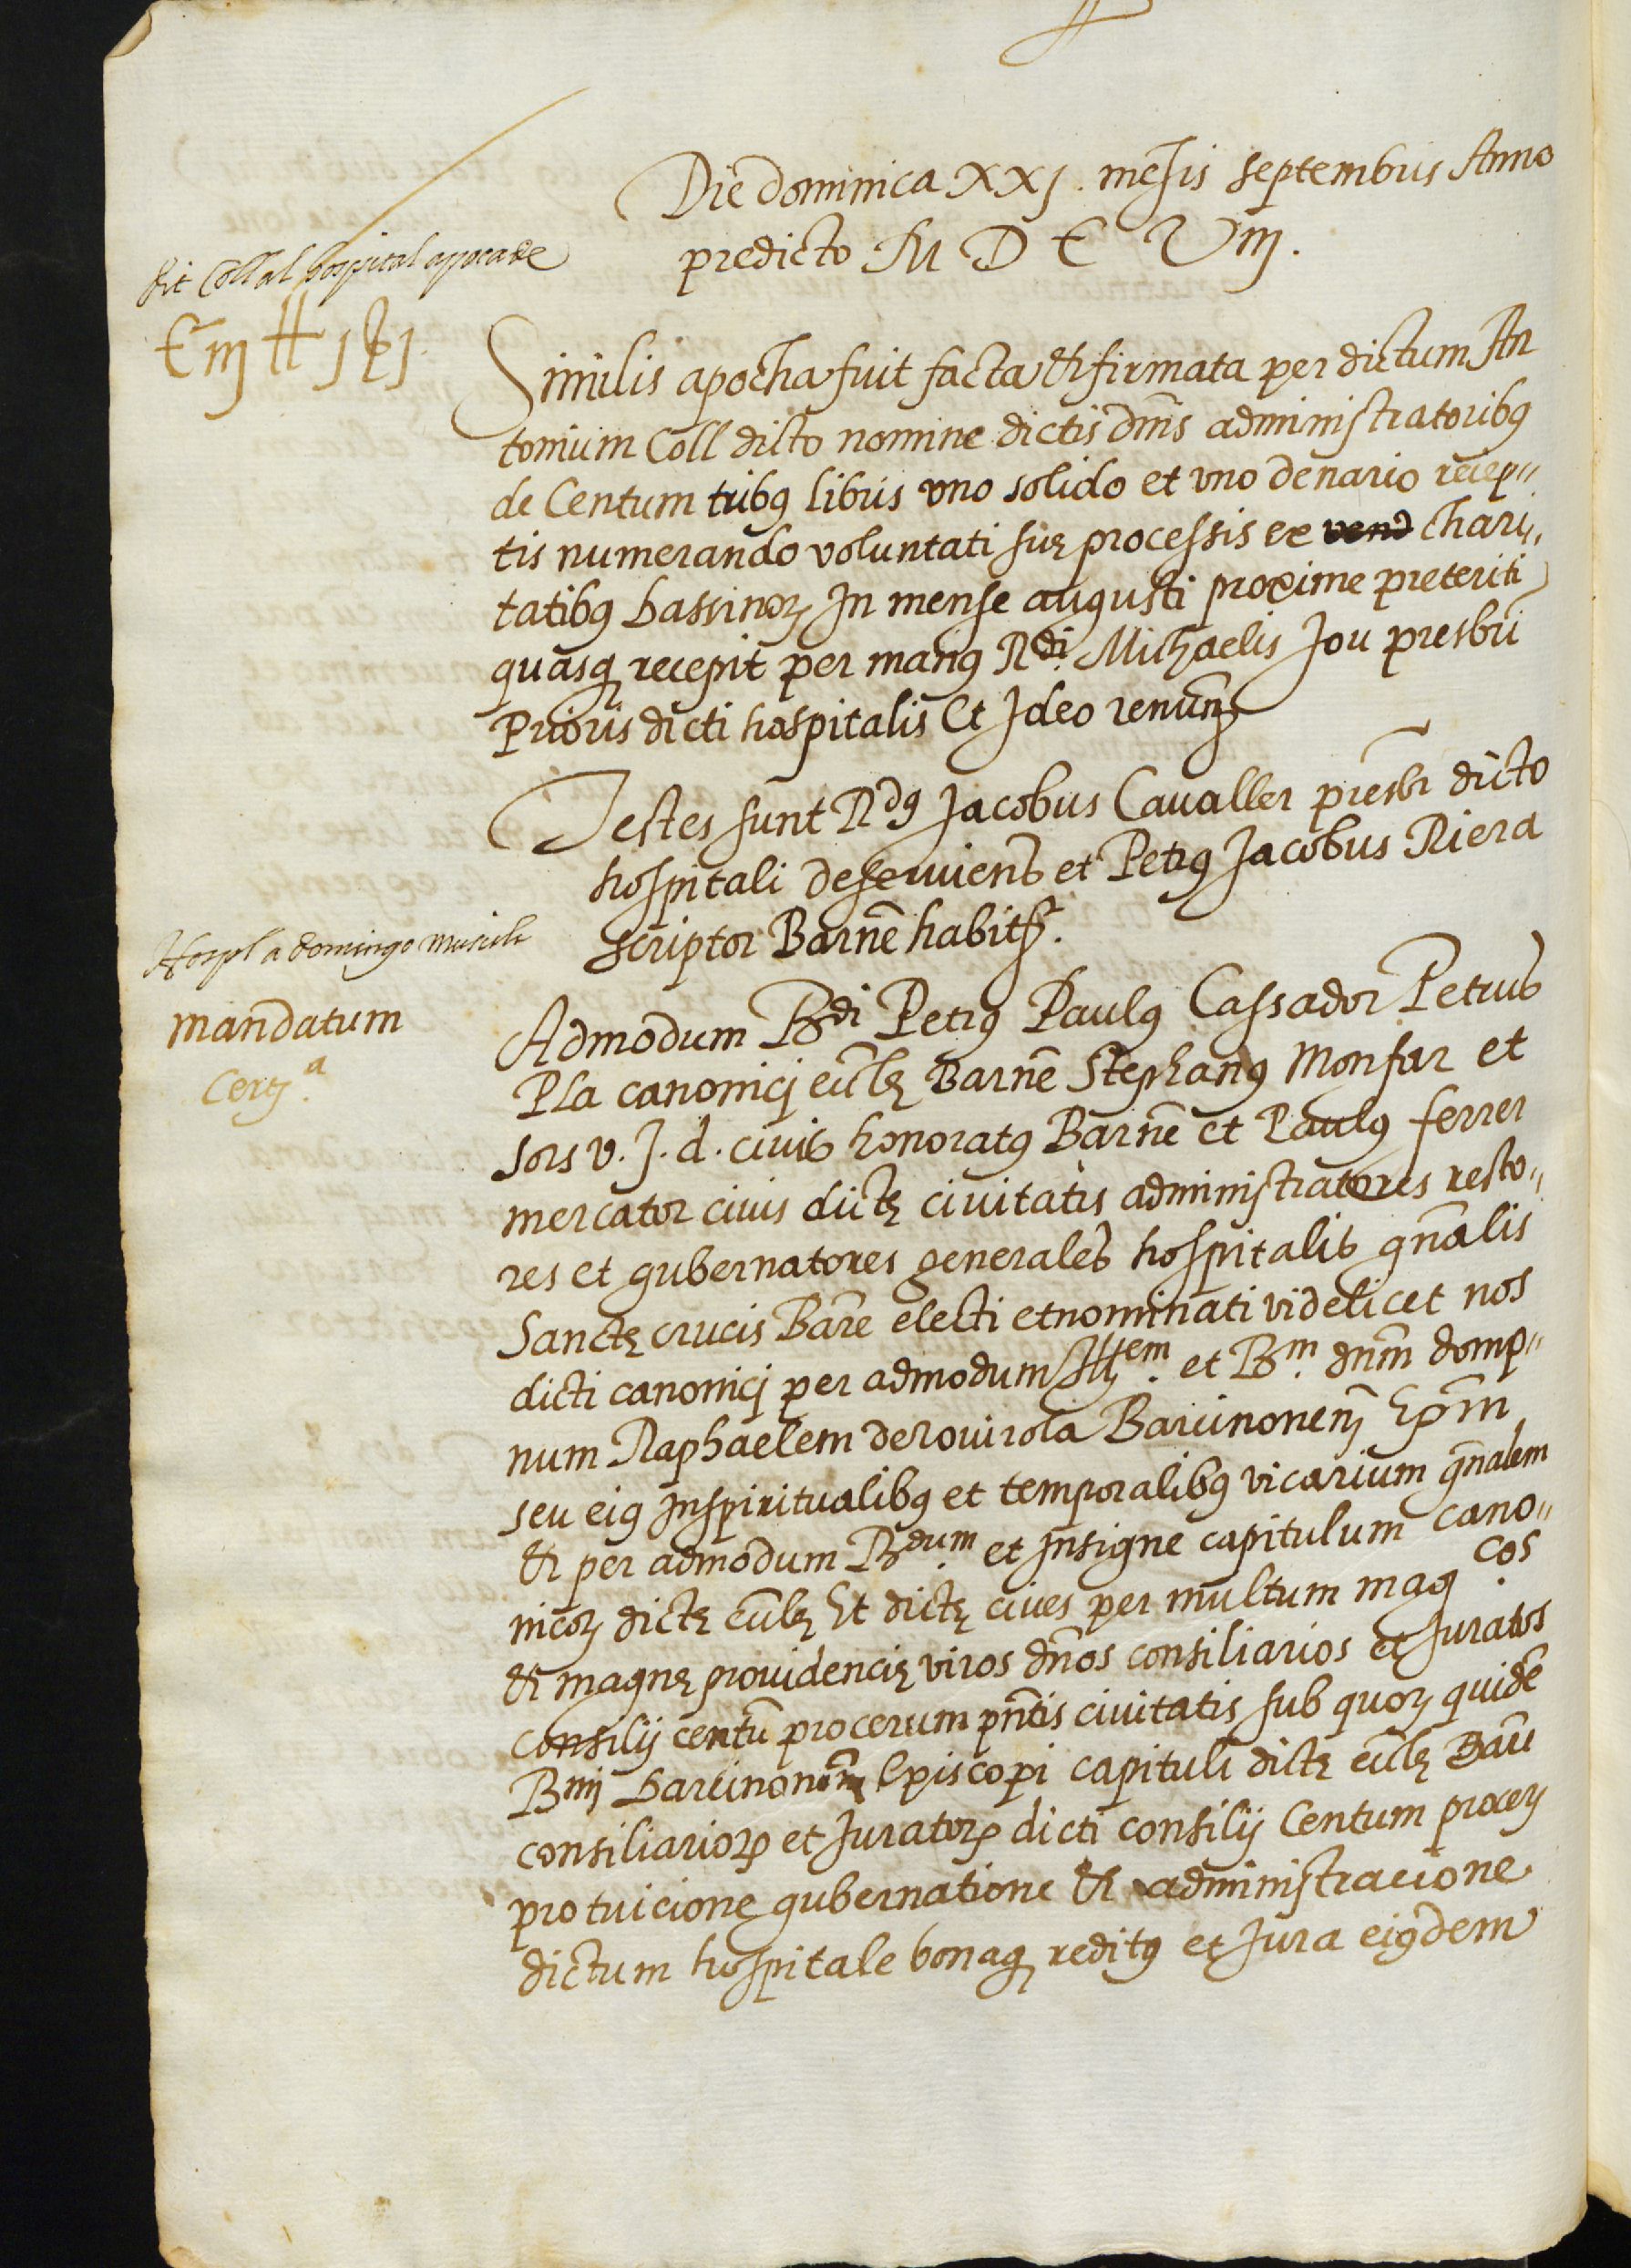 Die dominica XXJ. mēsis septembris Anno
predicto M D C Viij.
dit Coll al hospital apoca de
Ciij ℔ j ẞ j
Similis apocha fuit facta & firmata per dictum An
tonium Coll dicto nomine dictis dnīs administratoribꝯ
de Centum tribꝯ libris vno solido et vno denario recep„
tis numerando voluntati suę processis ex vend chari„
tatibꝯ bassinoꝝ In mense augusti proxime preteriti
quasq recepit per manꝯ Rdi. Michaelis Jou presbrī
Prioris dicti hospitalis Et Ideo renunꝫ
Testes sunt Rdꝯ Jacobus Caualler presbr dicto
hospitali deseruiens et Petrꝯ Jacobus Riera
scriptor Barnē habitꝫ.
Hospl a domingo
mandatum
Cerꝫ.a
Admodum Rdi Petrꝯ Paulꝯ Cassador Petrus
Pla canonicj eccl̄ę Barnē Stephanꝯ Monfar et
sors v. J. d. ciuis honoratꝯ Barnē et Paulꝯ ferrer
mercator ciuis dictę ciuitatis administratores recto„
res et gubernatores generales hospitalis gnālis
Sanctę crucis Barē electi et nominati videlicet nos
dicti canonicj per admodum Illem. et Rm. dnm̄ domp„
num Raphaelem de rouirola Barcinonenꝫ Ep̄m
seu eiꝯ Inspiritualibꝯ et temporalibꝯ vicarium gnālem
& per admodum Rdum. et Insigne capitulum cano„
nicoꝝ dictę eccl̄ę Et dictę ciues per multum mag cos
& magnę prouidencię viros dnōs consiliarios et Juratos
consilij centū procerum pn̄tis ciuitatis sub quoꝝ quidē
Rmj barcinonen Episcopi capituli dictę eccl̄ę Barē
consiliarioꝝ et Juratoꝝ dicti consilij Centum proceꝝ
pro tuicione gubernatione & administracione
dictum hospitale bonaq reditꝯ et Jura eiꝯdem